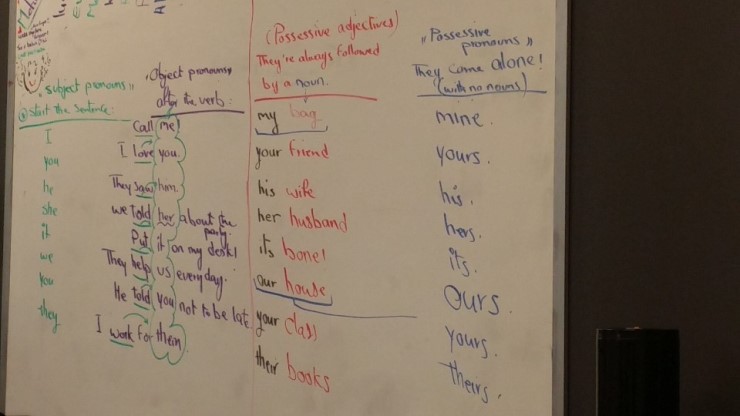 "subject pronouns"
start the sentence:
I
you
he
she
it
we
you
they
"Object pronouns"
after the verb:
Call me!
I love you.
They saw him.
we told her about the
party.
Put it on my desk!
They help us everyday.
He told you not to be late
I work for them.
(Possessive adjectives)
They're always followed
by a noun.
my bag
your friend
his wife
her husband
its bone!
our house
your class
their books
"Possessive
pronouns"
They come alone!
(with no nouns)
mine.
yours.
his.
hers.
its.
Ours.
yours.
theirs.